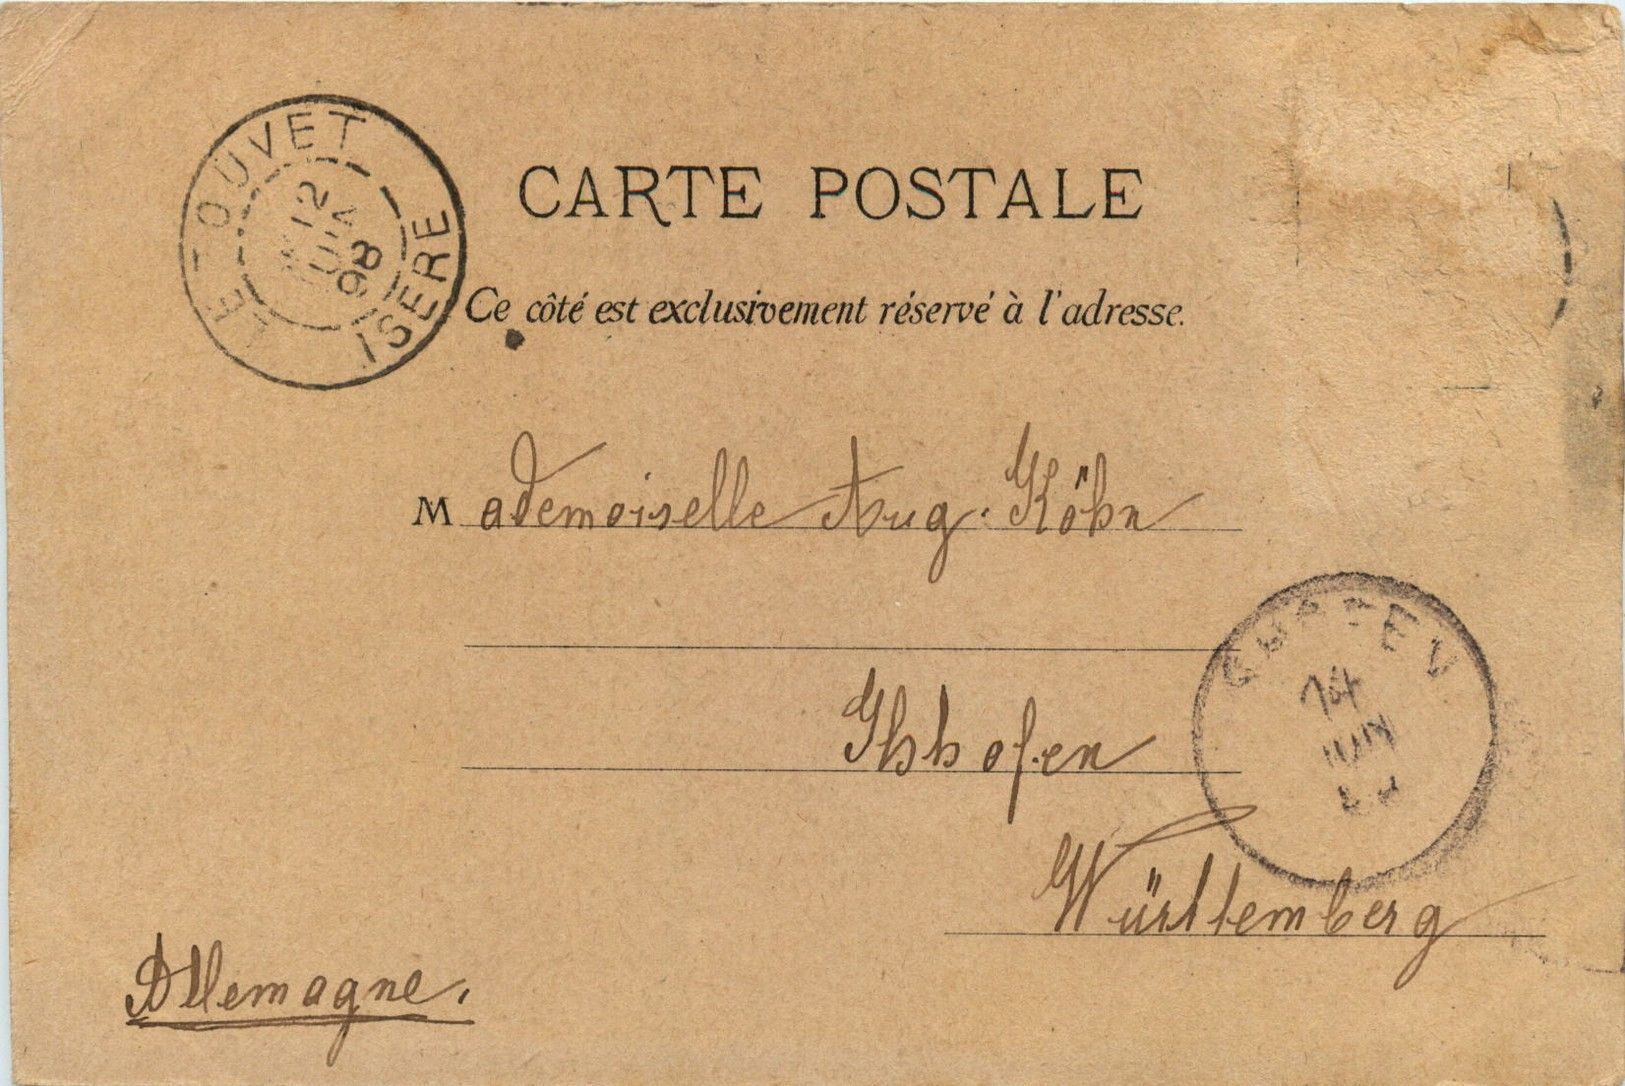 LE TOUVET
12
JUIN
98
ISERE
CARTE POSTALE
Ce côté est exclusivement réservé à l'adresse.
Mademoiselle Aug. Köhn
14
JUIN
Württemberg
Allemagne.